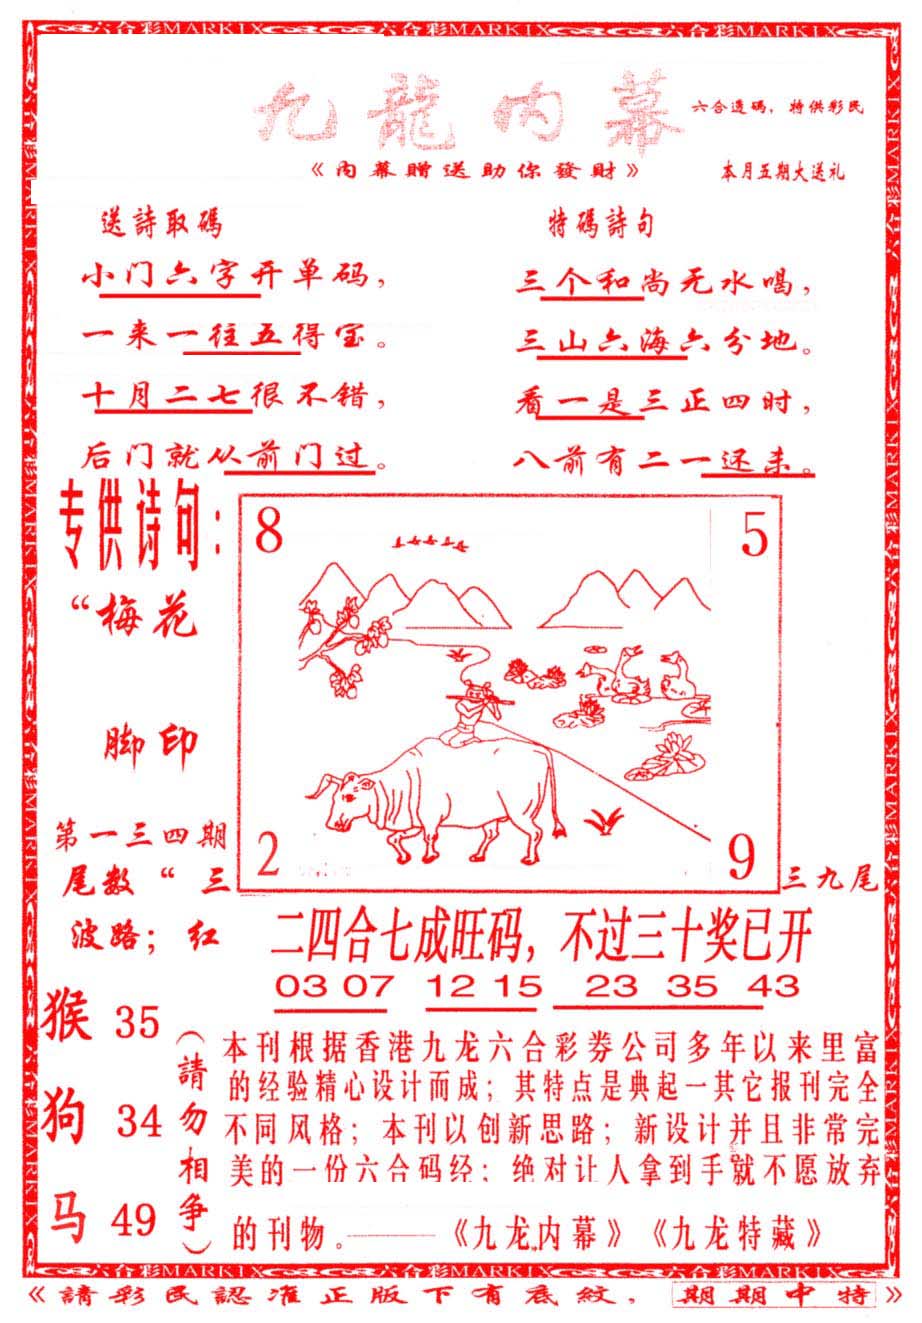 六合彩MARKIX 六合彩MARKIX 六合彩MARKIX
九龍内幕
六合透碼，特供彩民
《内幕贈送助你發財》
本月五期大送礼
送詩取碼
小门六字开单码，
一来一往五得宝。
十月二七很不错，
后门就从前门过。
特碼詩句
三个和尚无水喝，
三山六海六分地。
看一是三正四时，
八前有二一还来。
专供诗句：
“梅花
脚印
8
5
2
9
第一三四期
尾数“三
三九尾
波路；红
二四合七成旺码，不过三十奖已开
03 07 12 15 23 35 43
猴 35
狗 34
马 49
（請勿相争）
本刊根据香港九龙六合彩券公司多年以来里富
的经验精心设计而成；其特点是典起一其它报刊完全
不同风格；本刊以创新思路；新设计并且非常完
美的一份六合码经；绝对让人拿到手就不愿放弃
的刊物。——《九龙内幕》《九龙特藏》
六合彩MARKIX 六合彩MARKIX 六合彩MARKIX
《請彩民認准正版下有底紋，期期中特》